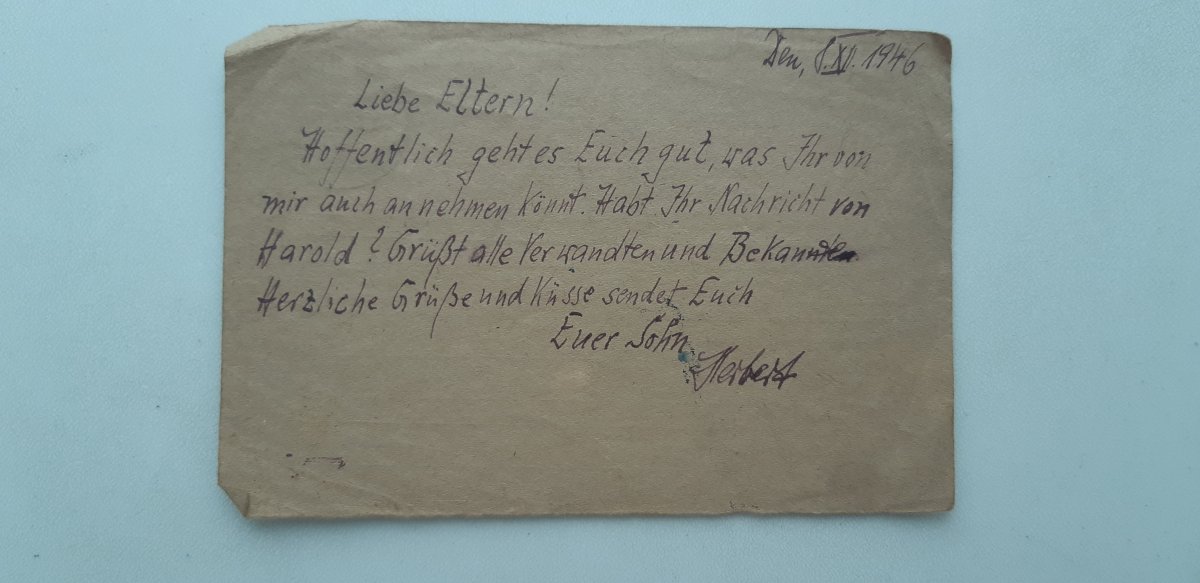 Den, 8.XII. 1946
Liebe Eltern!
Hoffentlich geht es Euch gut, was Ihr von
mir auch annehmen könnt. Habt Ihr Nachricht von
Harold? Grüßt alle Verwandten und Bekannten
Herzliche Grüße und Küsse sendet Euch
Euer Sohn
Herbert